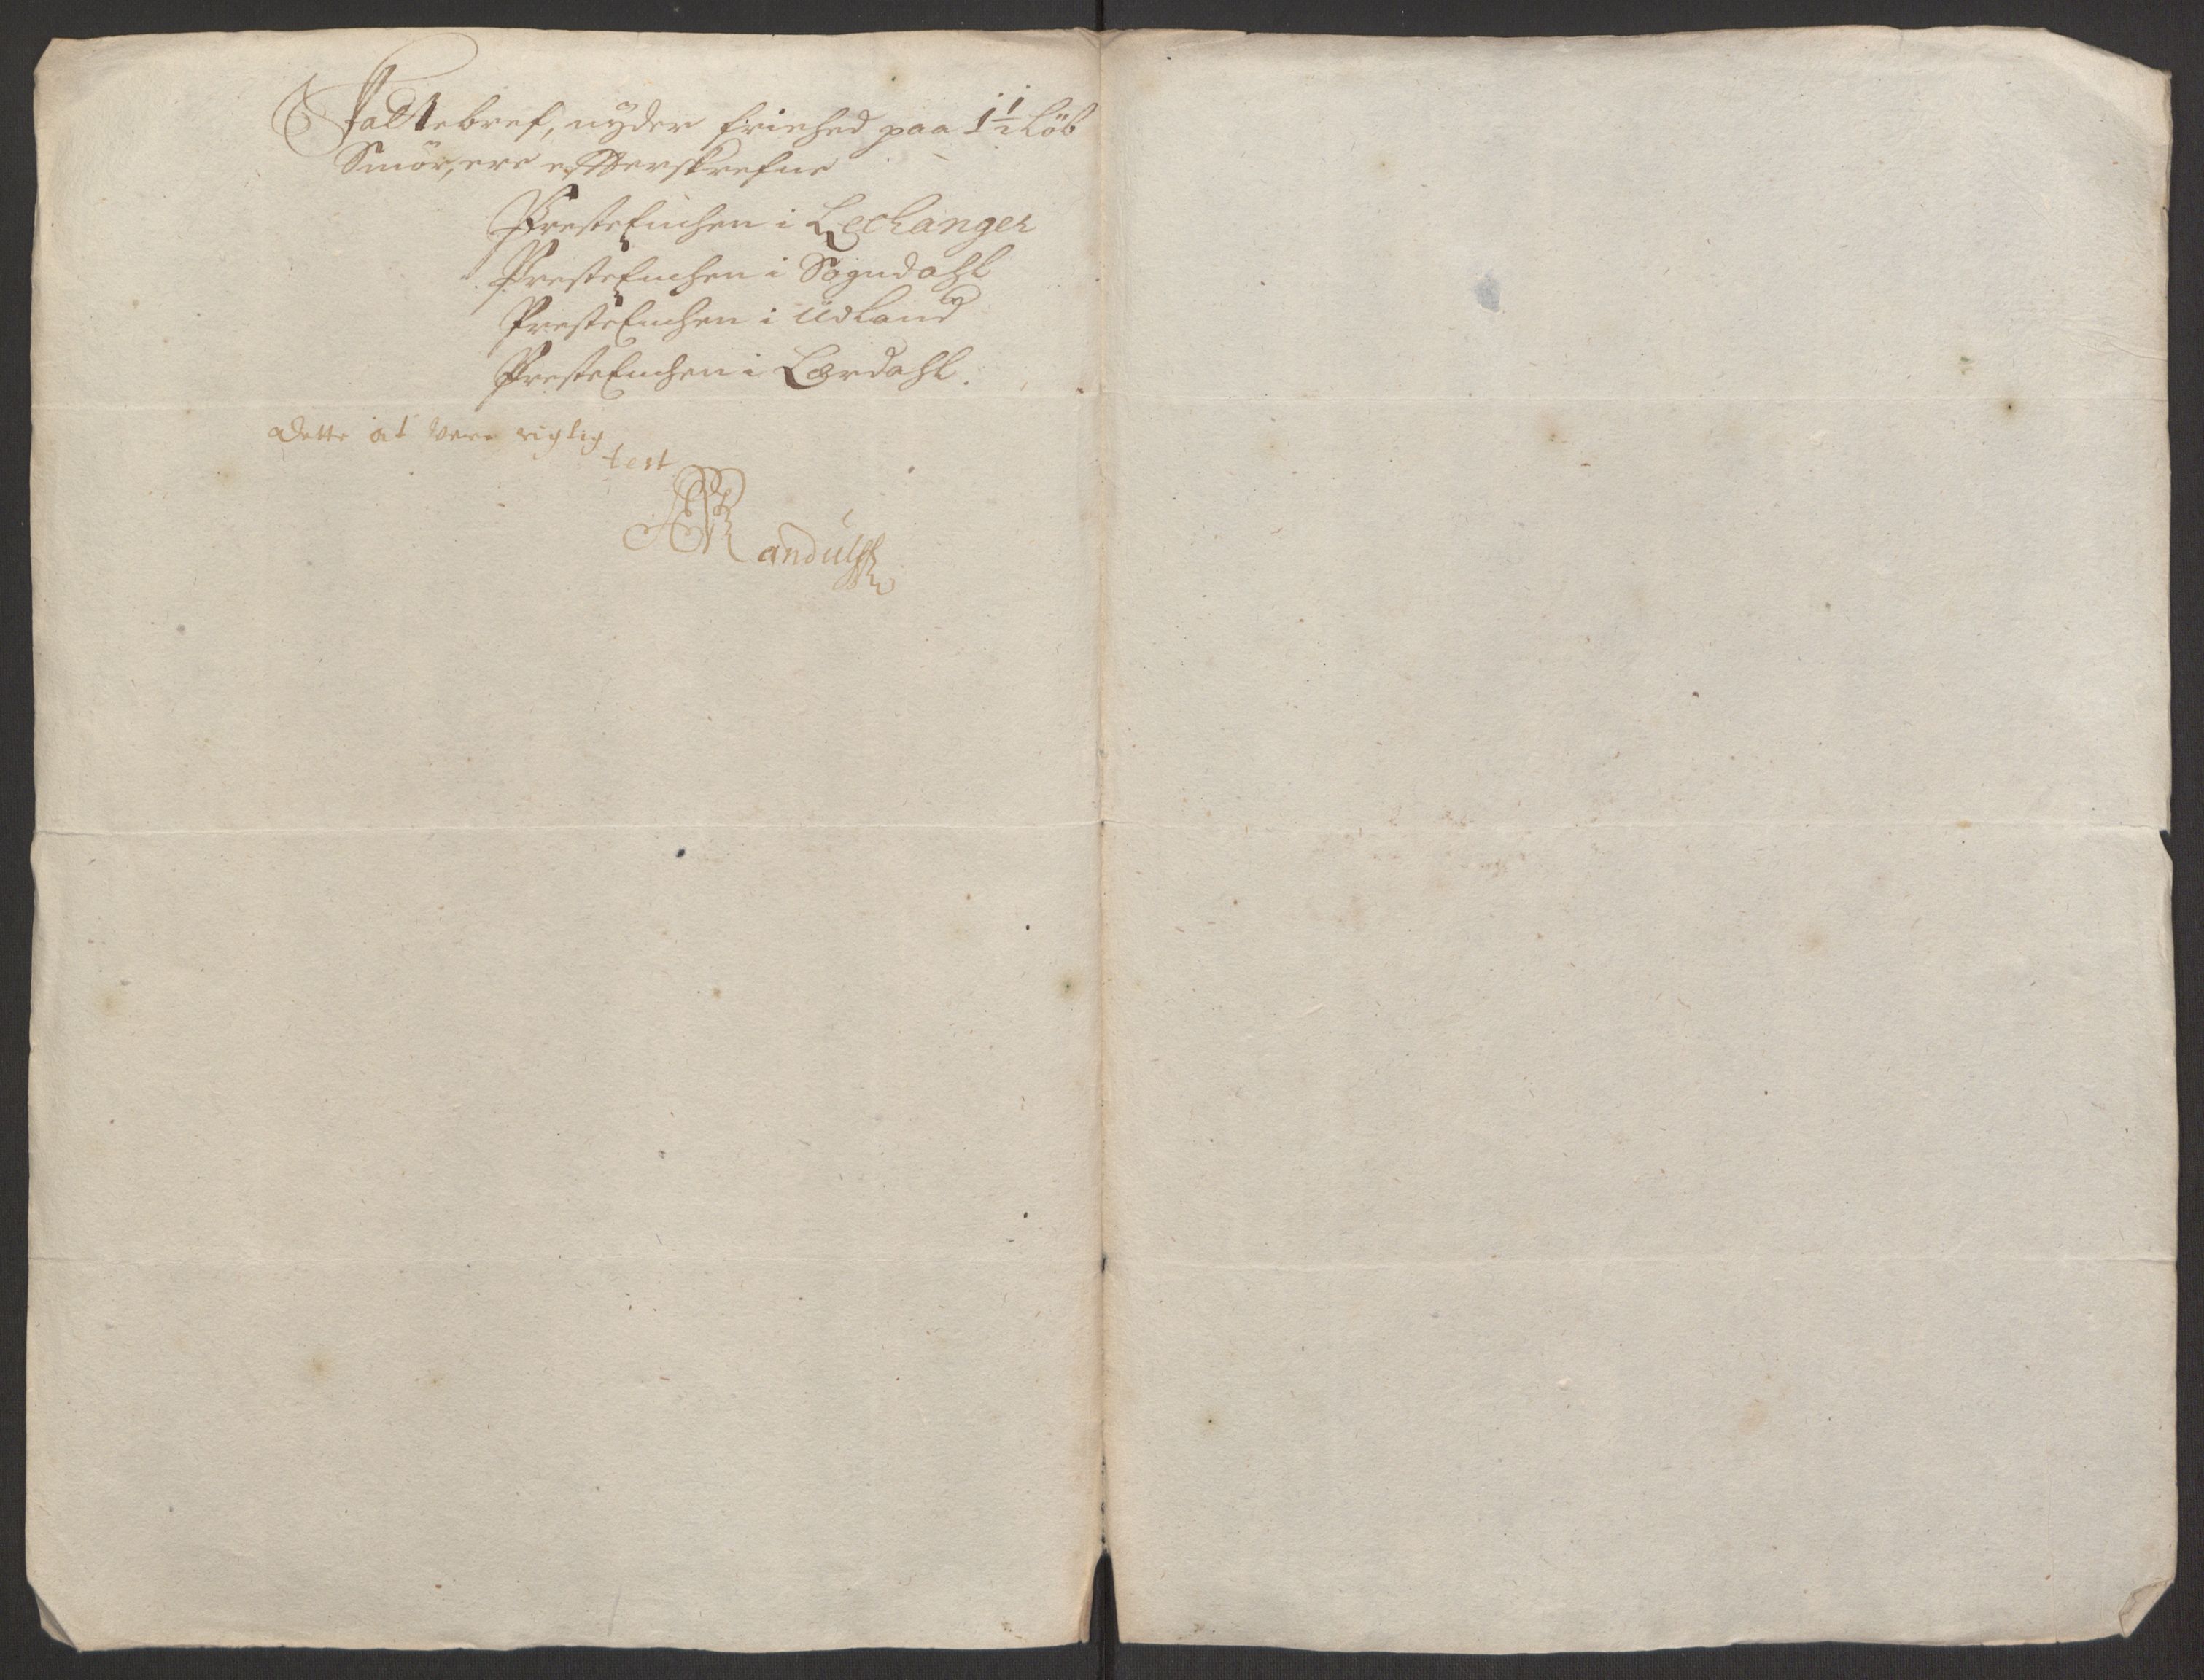 Jattebref, nyder friehed paa 1 1/2 Löb
Smör, ere effterskrefne
PresteEnchen i Lechanger
PresteEnchen i Sogndahl
PresteEnchen i Udland
PresteEnchen i Lærdahl.
dette at Vere rigtig
test
Randulff